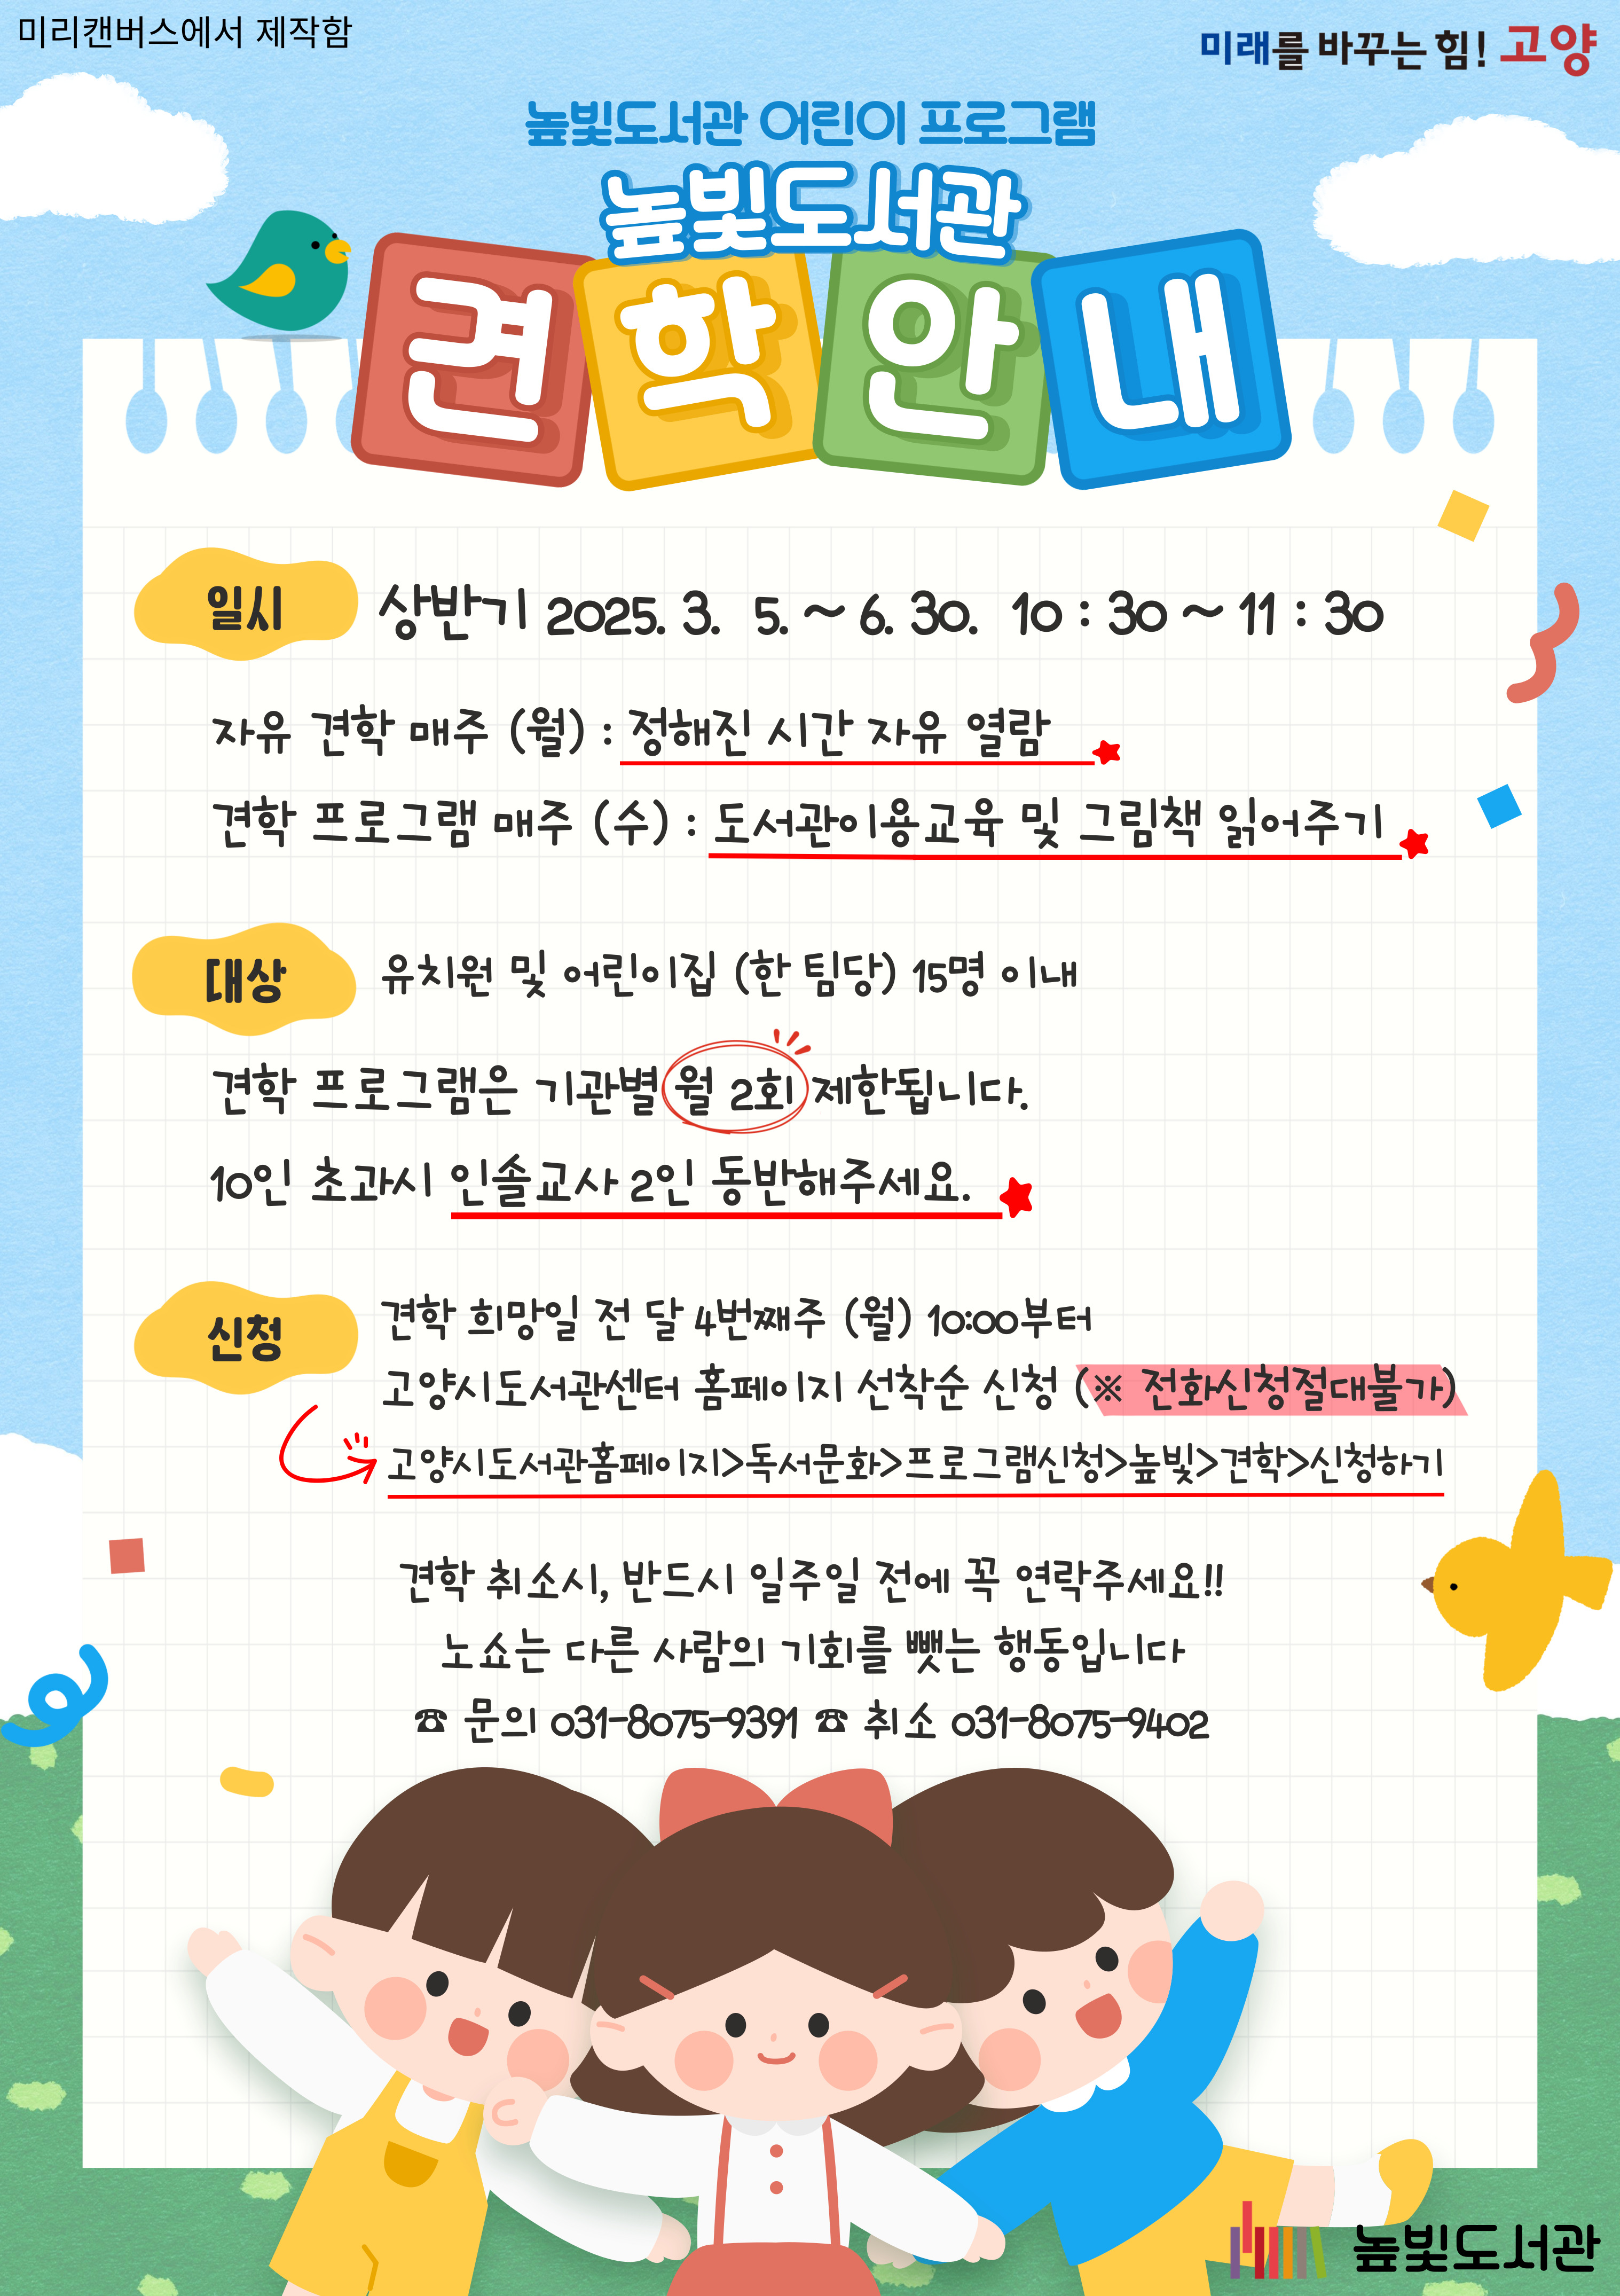 미리캔버스에서 제작함
미래를 바꾸는 힘! 고양
높빛도서관 어린이 프로그램
높빛도서관
견학안내
일시 상반기 2025. 3. 5. ~ 6. 30. 10 : 30 ~ 11 : 30
자유 견학 매주 (월) : 정해진 시간 자유 열람
견학 프로그램 매주 (수) : 도서관이용교육 및 그림책 읽어주기
대상 유치원 및 어린이집 (한 팀당) 15명 이내
견학 프로그램은 기관별 월 2회 제한됩니다.
10인 초과시 인솔교사 2인 동반해주세요.
신청 견학 희망일 전 달 4번째주 (월) 10:00부터
고양시도서관센터 홈페이지 선착순 신청 (※ 전화신청절대불가)
고양시도서관홈페이지>독서문화>프로그램신청>높빛>견학>신청하기
견학 취소시, 반드시 일주일 전에 꼭 연락주세요!!
노쇼는 다른 사람의 기회를 뺏는 행동입니다
☎ 문의 031-8075-9391 ☎ 취소 031-8075-9402
높빛도서관